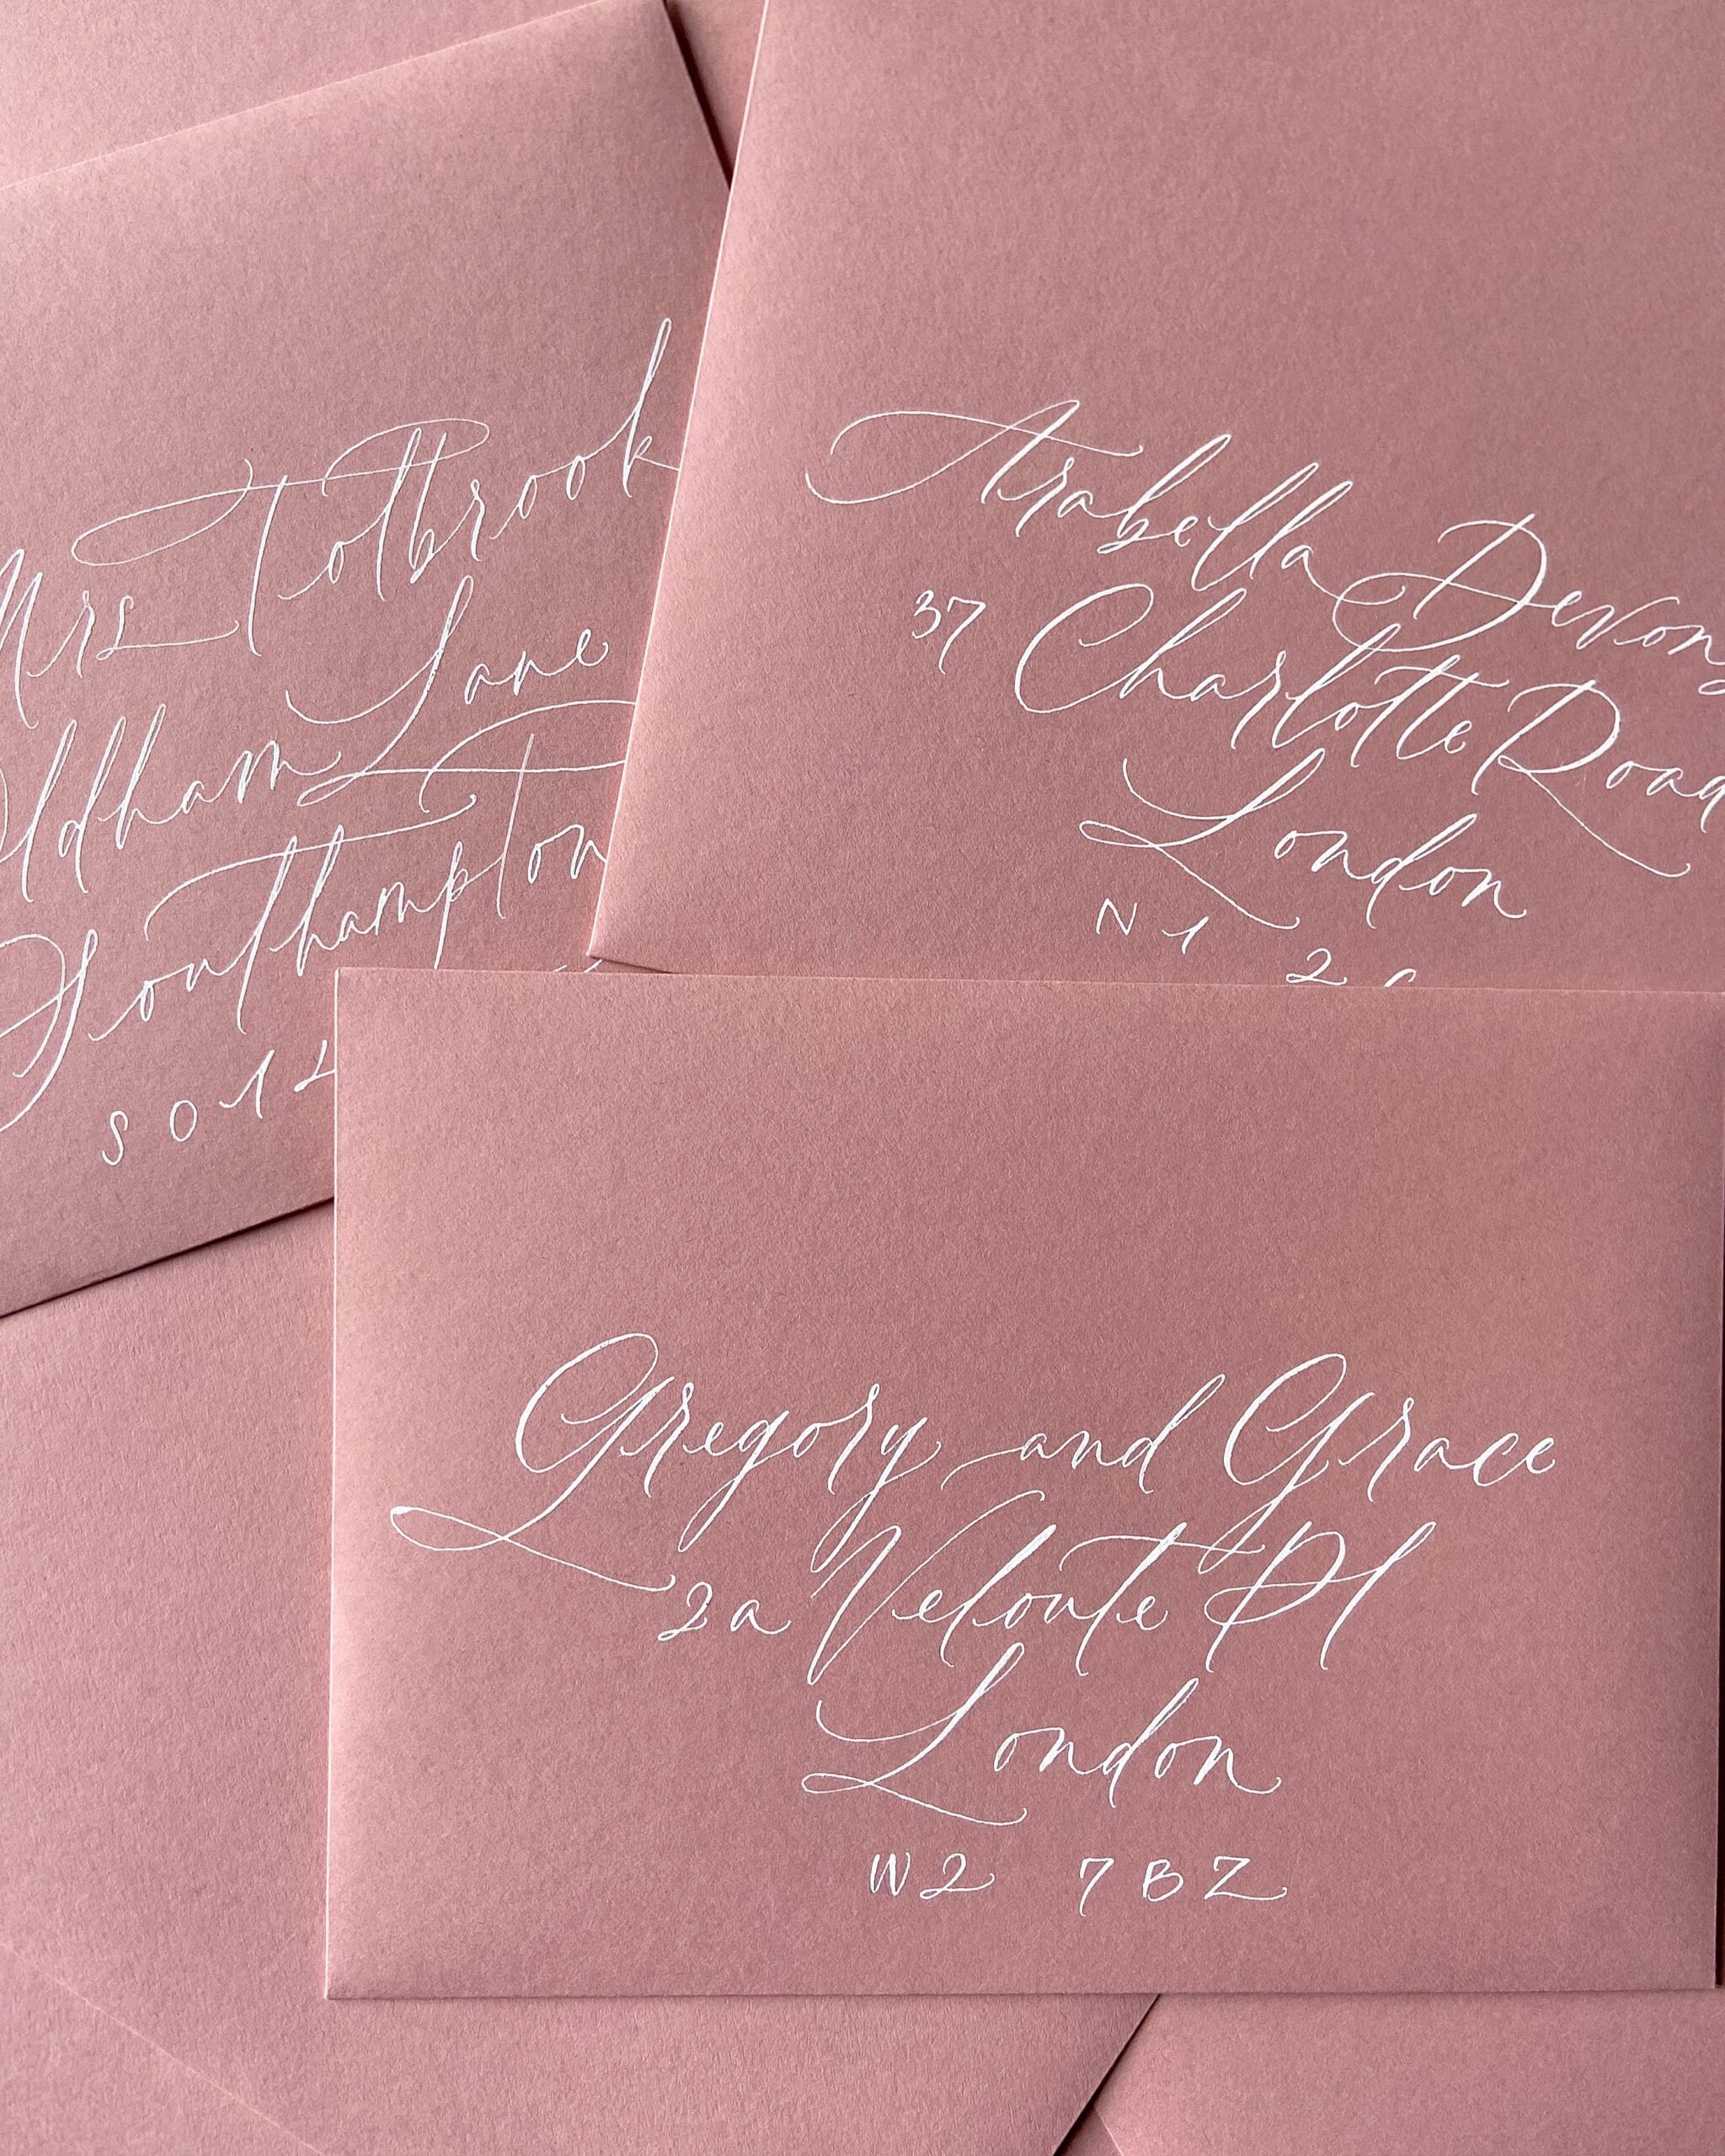 Mrs Tolbrook
Oldham Lane
Southampton
SO1
Arabella Devon
37 Charlotte Road
London
N1 2
Gregory and Grace
2a Veloute Pl
London
W2 7BZ